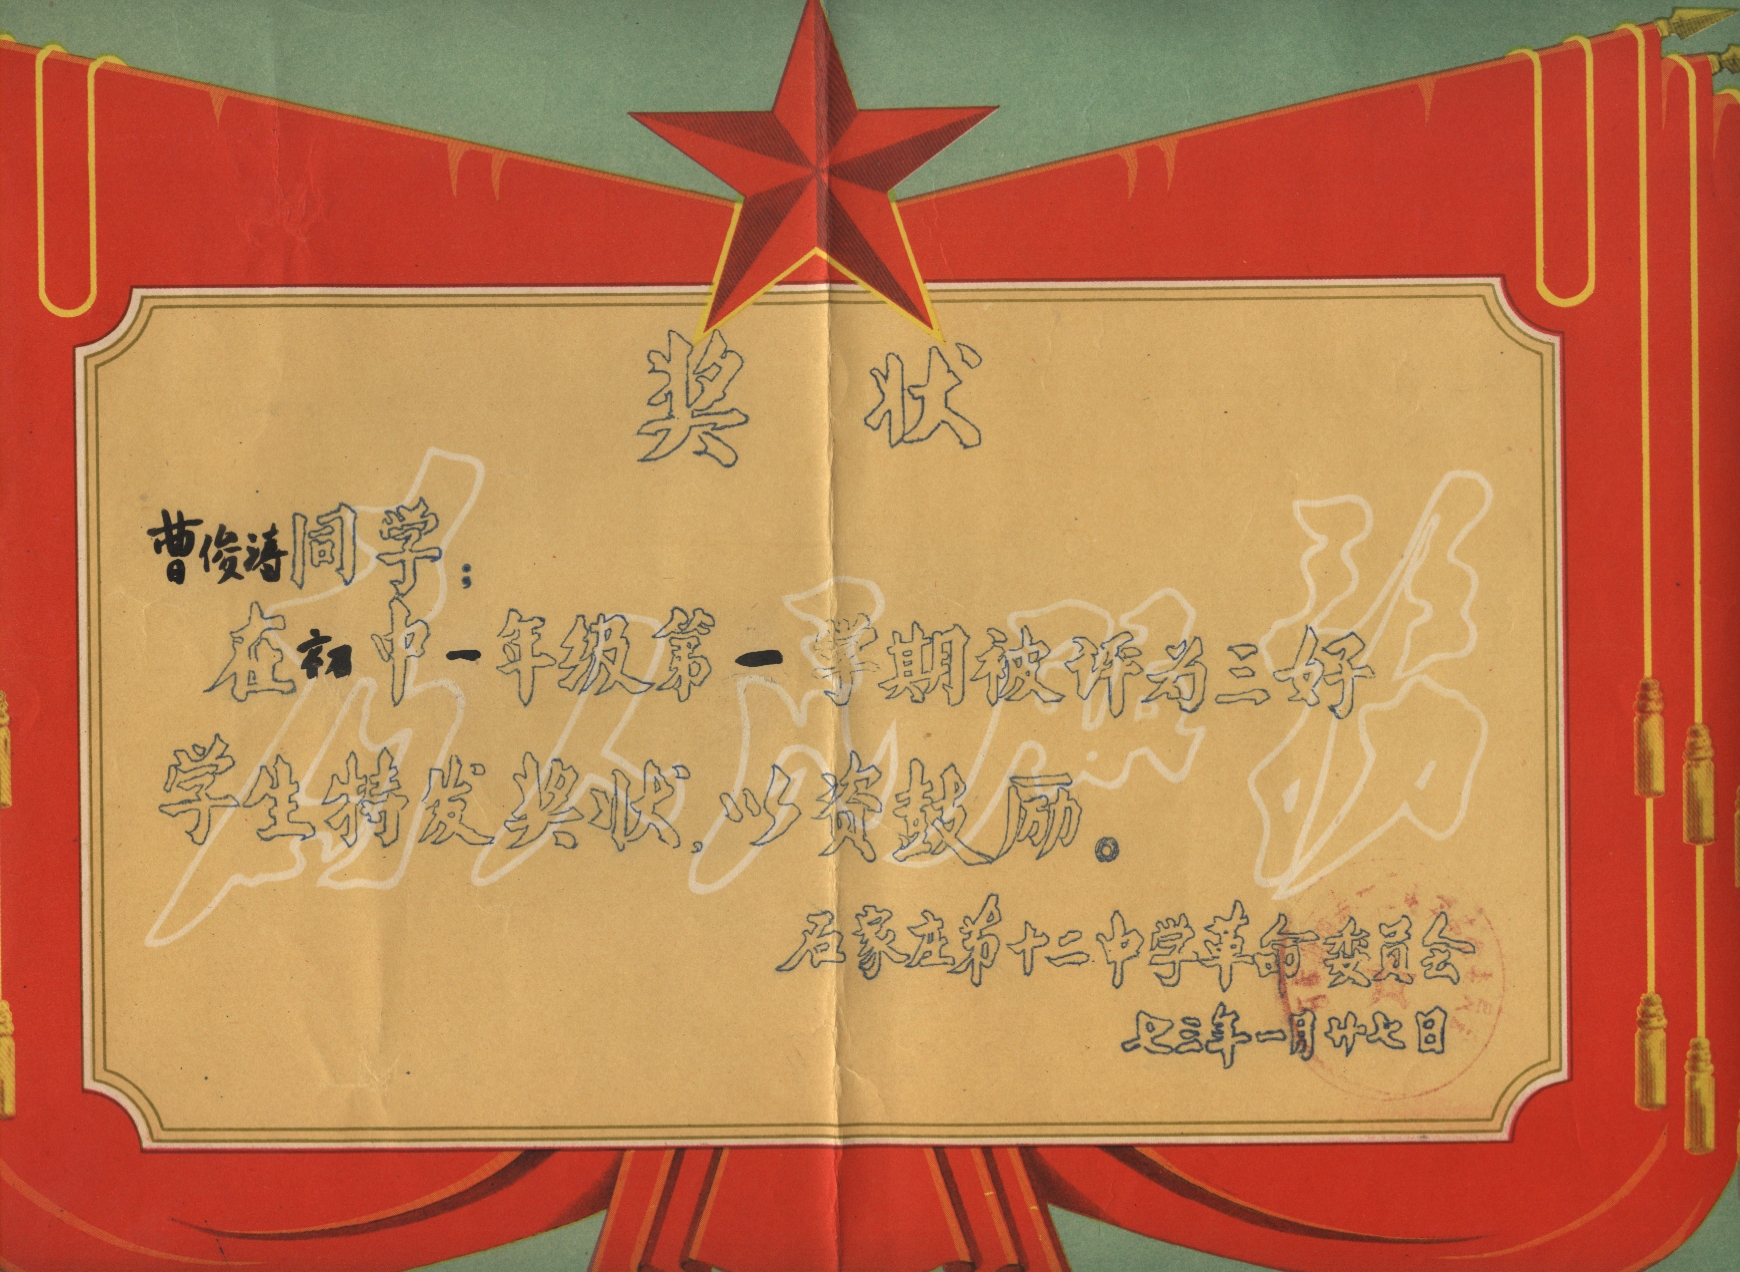 奖状
曹俊涛同学：
在初中一年级第一学期被评为三好
学生特发奖状，以资鼓励。
石家庄第十二中学革命委员会
七三年一月廿七日
为人民服务